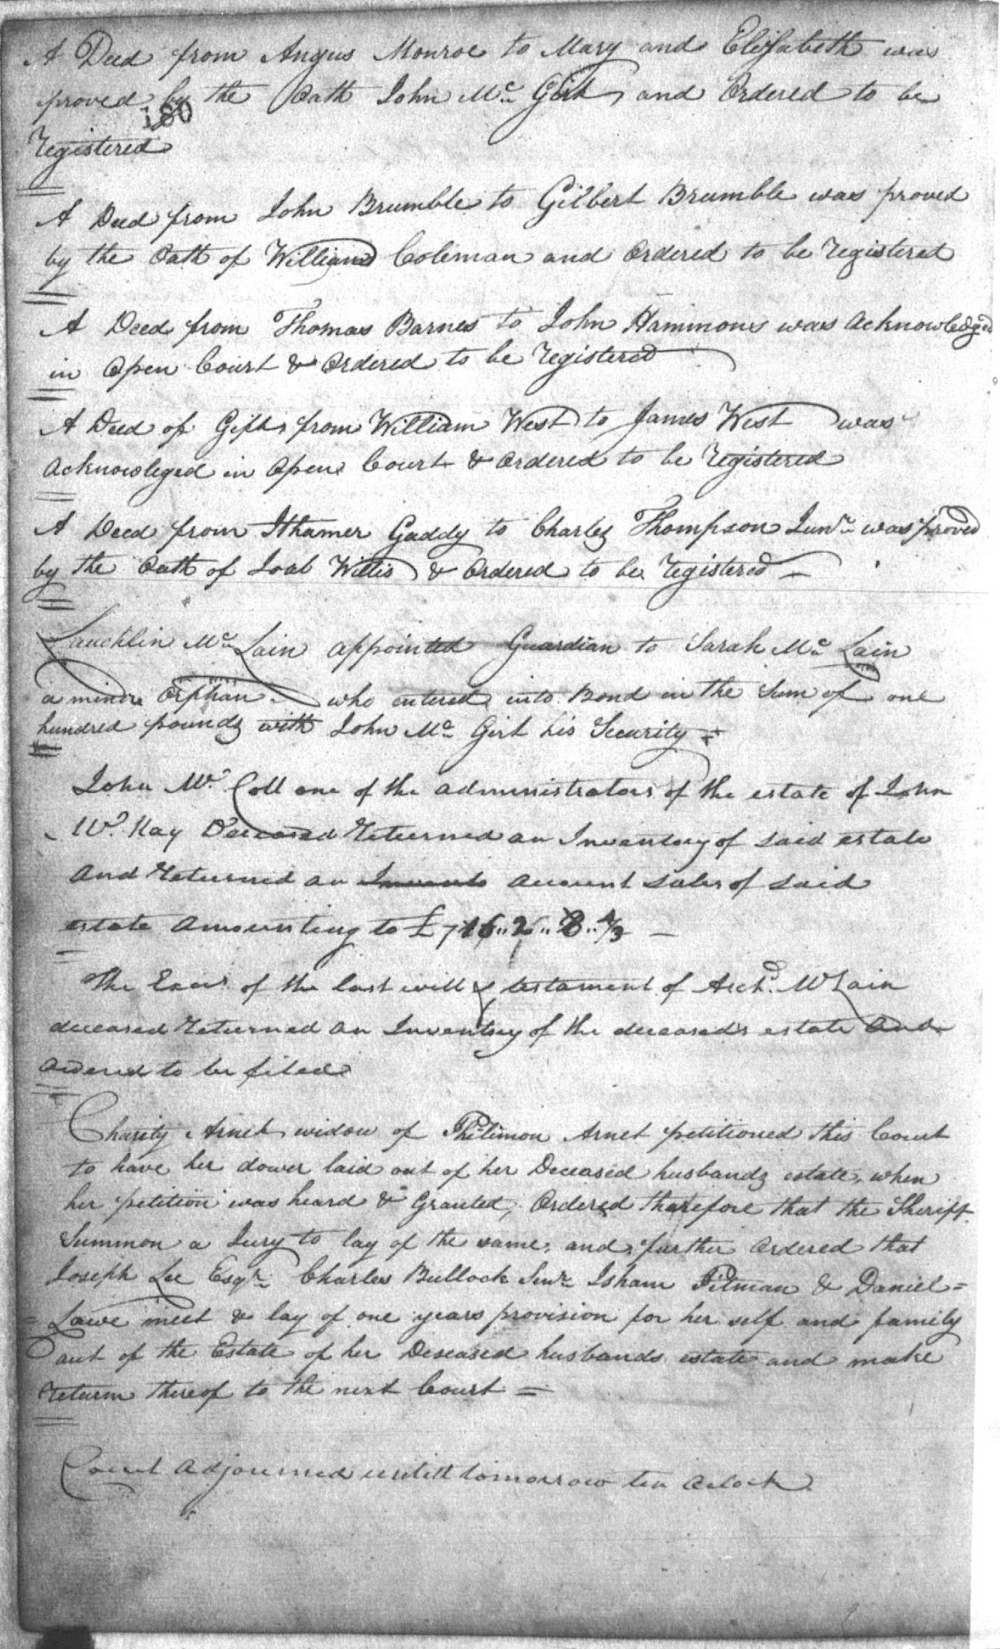 A Deed from Angus Monroe to Mary and Elizabeth was
proved by the Oath John Mc Girt and Ordered to be
180
Registered
A Deed from John Brumble to Gilbert Brumble was proved
by the Oath of William Coleman and Ordered to be Registered
A Deed from Thomas Barnes to John Hammons was Acknowledged
in Open Court & Ordered to be Registered
A Deed of Gift from William West to James West was
Acknowleged in Open Court & Ordered to be Registered
A Deed from Ithamer Gaddy to Charles Thompson Junr was proved
by the Oath of Joab Willis & Ordered to be Registered
Lauchlin Mc Lain appointed Guardian to Sarah Mc Lain
a minor Orphan who entered into Bond in the Sum of one
hundred pounds with John Mc Girt his Security
John Mc Coll one of the administrators of the estate of John
Mc Kay Deceased Returned an Inventory of said estate
And Returned an account sales of said
estate Amounting to £
The Exrs of the last will & testament of Archd McLain
deceased Returned an Inventory of the deceased's estate And
Ordered to be filed
Charity Arnet widow of Philimon Arnet petitioned this Court
to have her dower laid out of her Deceased husbands estate, when
her petition was heard & Granted, Ordered therefore that the Sheriff
Summon a Jury to lay of the same, and further Ordered that
Joseph Lee Esqr Charles Bullock Senr Isham Pitman & Daniel =
= Lawe meet & lay of one years provision for her self and family
out of the Estate of her Deseased husbands estate and make
Return thereof to the next Court =
Court Adjourned untill tomorrow ten Oclock